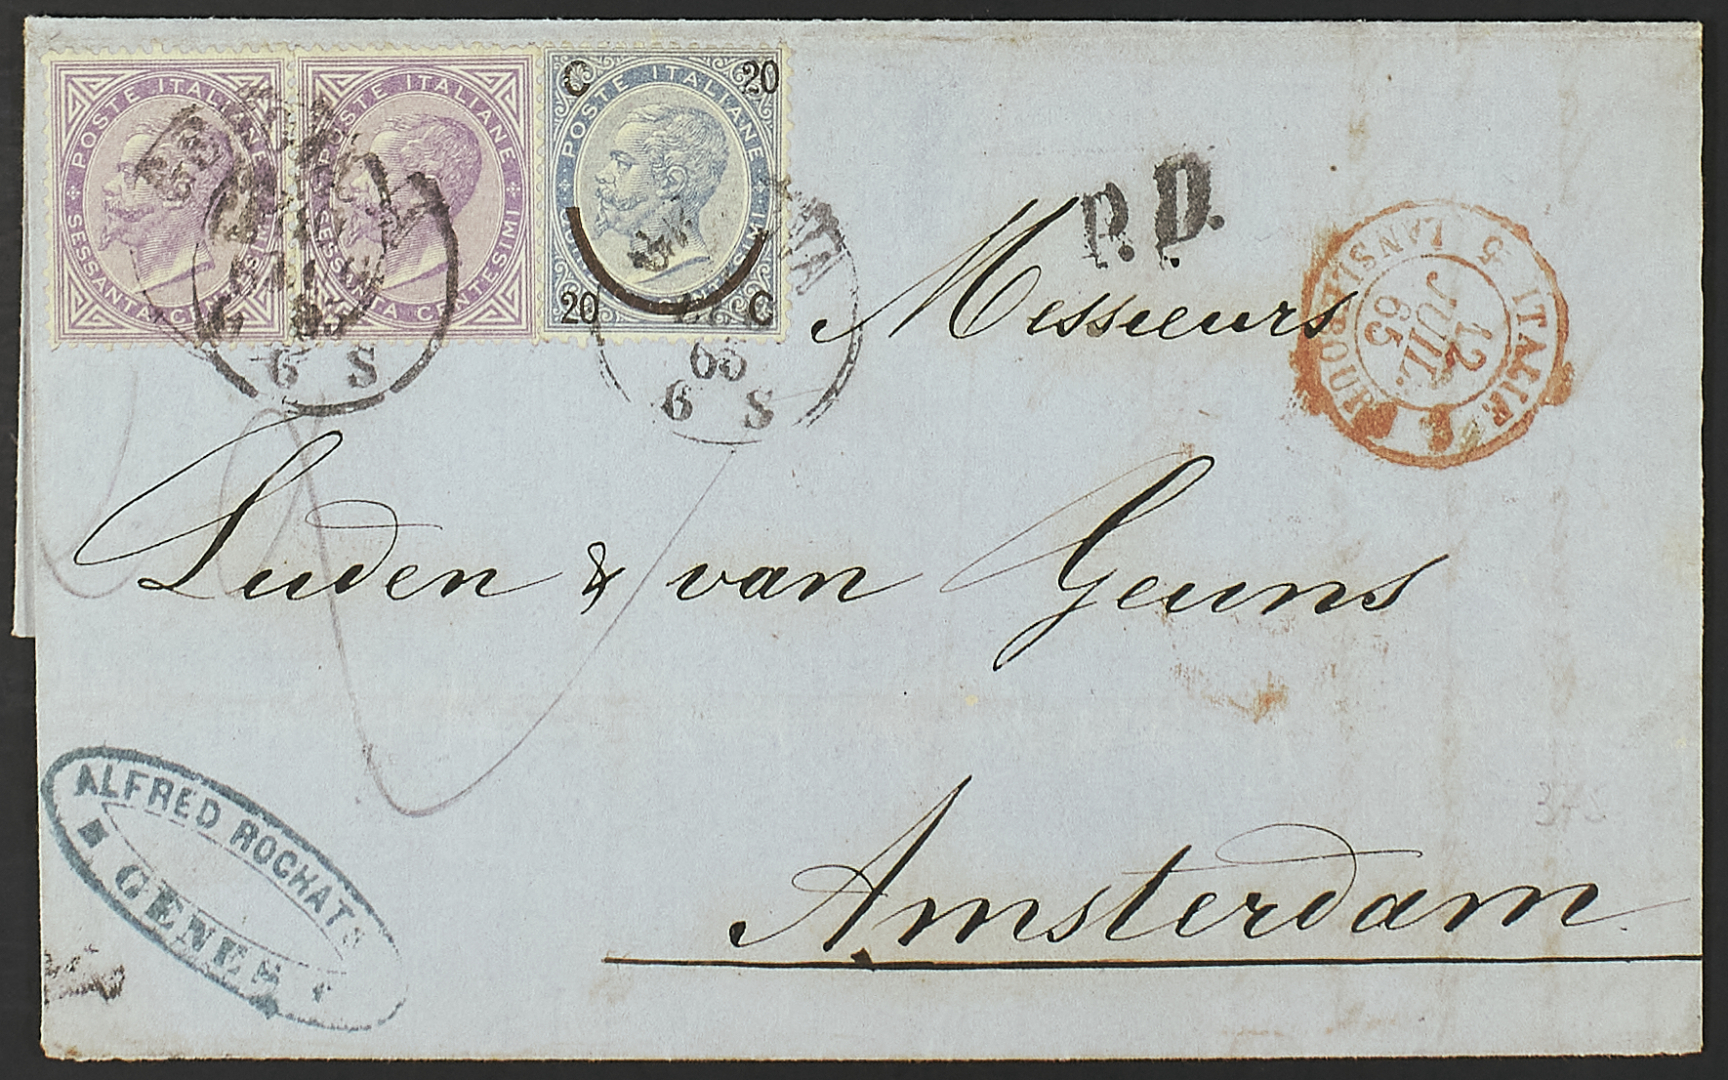 POSTE ITALIANE
SESSANTA CENTESIMI
POSTE ITALIANE
SESSANTA CENTESIMI
C 20
POSTE ITALIANE
20 C
65
6 S
65
6 S
P.D.
5 ITALIE
12
JUIL.
65
Messieurs
Luden & van Geuns
Amsterdam
ALFRED ROCHATS
GENES